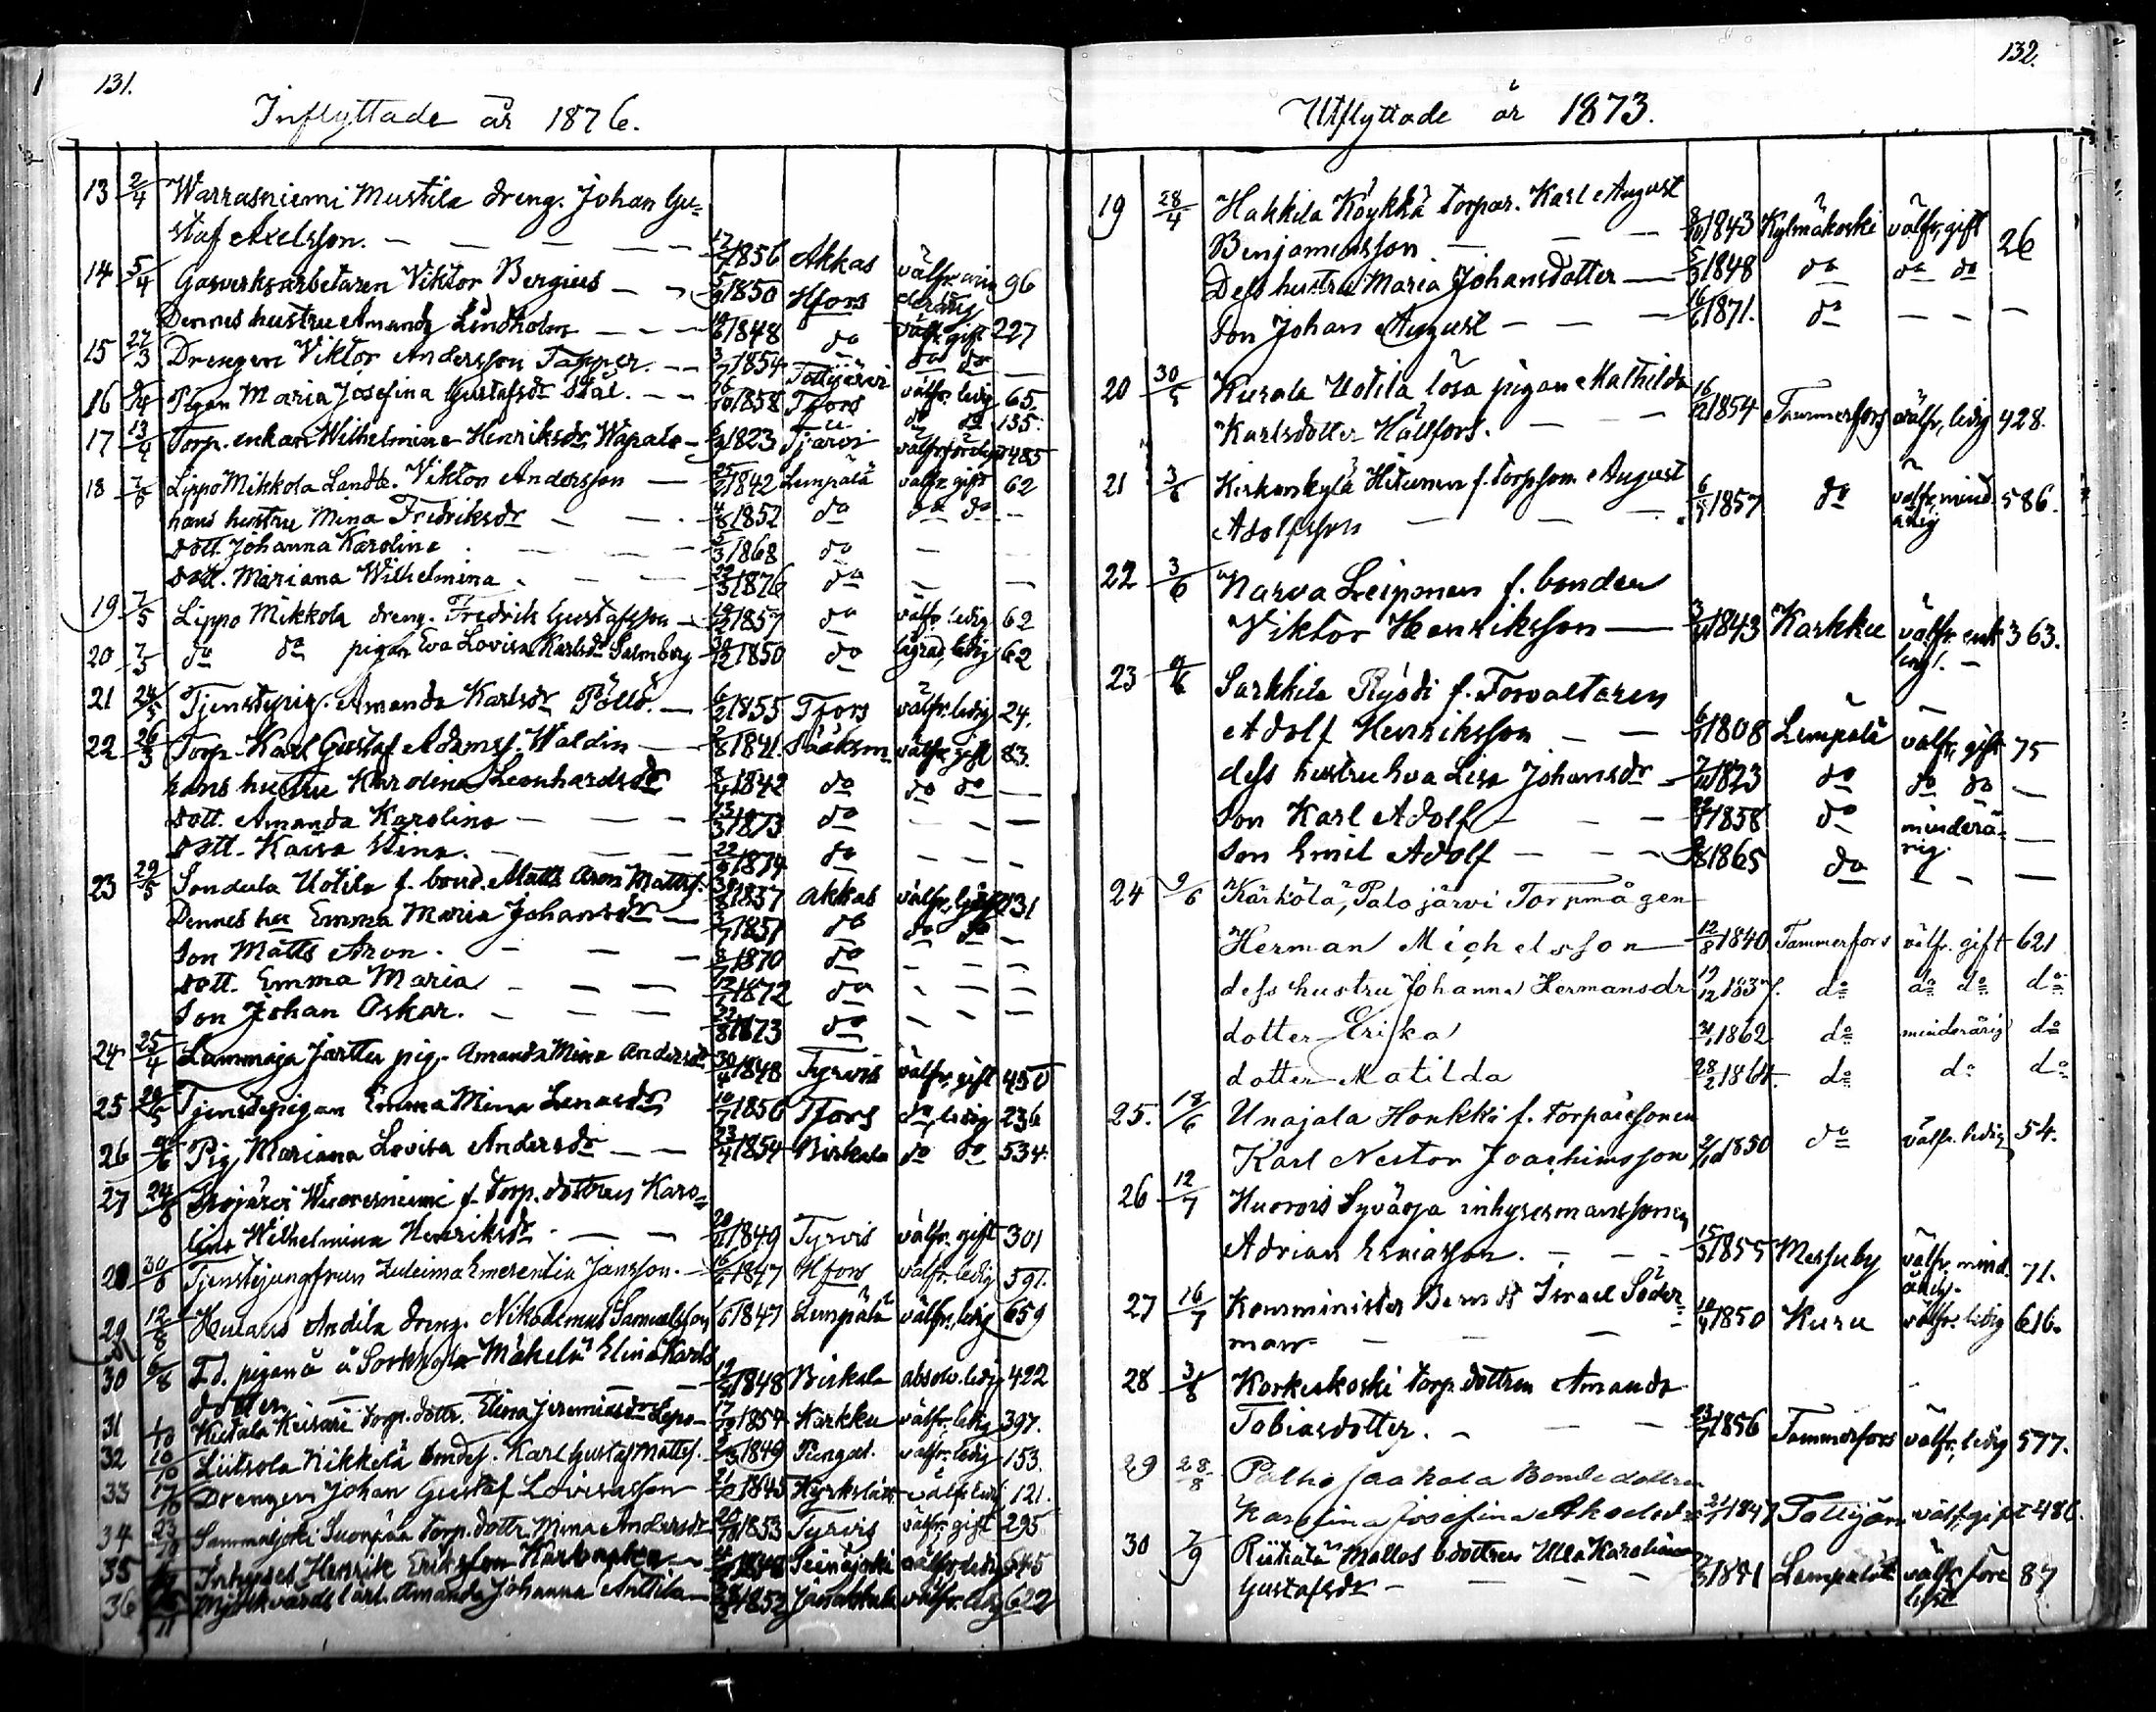 131.
Inflyttade år 1876.
13 2/4 Warrasniemi Mustila dreng. Johan Gu-
staf Axelsson. — 1856 Akkas välfr. min 96
derårig
14 5/4 Gasverksarbetaren Viktor Bergius — 1850 Hfors
Dennes hustru Amanda Lindholm — 1848 do välfr. gift 227
15 27/3 Drengen Viktor Andersson Tapper. — 1854 Tottijärvi do do —
16 Pigan Maria Josefina Gustafsdr Stål. — 1858 Tfors välfr. ledig 65.
do do 135.
17 13/4 Torp. enkan Wilhelmina Henriksdr Wapalo — 1823 Tjärvi 485
18 7/5 Lippo Mikkola Landb. Viktor Andersson — 1842 Lempälä välfr. gift 62
hans hustru Mina Fredriksdr — 1852 do do do —
dott. Johanna Karolina — 1868 do — —
dott. Mariana Wilhelmina — 1876 do — —
19 7/5 Lippo Mikkola dreng. Fredrik Gustafsson — 1857 do välfr. ledig 62
20 7/5 do do pigan Eva Lovisa Karlsdr Salmberg 1850 do ledig 62
21 24/5 Tjenstepig. Amanda Karlsdr Pöllö. — 1855 Tfors välfr. ledig 24.
22 26/3 Torp. Karl Gustaf Adamss. Waldin — 1841. Sääksm. välfr. gift 83.
hans hustru Karolina Leonhardsdr 1842 do do do —
dott. Amanda Karolina — 1873 do — —
dott. Kaisa Stina. — 1874 do — —
23 29/5 Sondula Uotila f. bond. Matts Aron Mattss. 1837 Akkas välfr. 131
Dennes hu Emma Maria Johansdr — 1837 do do do —
Son Matts Aron. — 1870 do — —
dott. Emma Maria — 1872 do — —
Son Johan Oskar. — 1873 do — —
24 25/4 Lammaja Jartta pig. Amanda Mina Andersdr 30/4 1848 Tyrvis välfr. gift 450
25 Tjenstepigan Emma Mina Lenasdr 1856 Tfors do ledig 236
26 Pig Mariana Lovisa Andersdr — 1854 Birkala do do 534.
27 f. Torp. dottren Karo-
lina Wilhelmina Henriksdr — 1849 Tyrvis välfr. gift 301
28 30/8 Tjenstejungfrun Zuleima Emerentia Jansson. — 1847 Hfors välfr. ledig 591.
29 12/8 Andila dreng. Nikodemus Samuelsson 1847 Lempälä välfr. ledig 659
30 6/8 F.d. pigan å Sorkkola Mäkelä Elina Karls
dotter — 1848 Birkala absolv. ledig 422
31 Kutala Keisari torp. dottr. Elina Jeremiasdr Lepo — 1854 Karkku välfr. ledig 397.
32 Liitsola Nikkilä bondes. Karl Gustaf Mattss. 1849 Pungal. välfr. ledig 153.
33 17/10 Drengen Johan Gustaf Lovisasson 1845 Kyrkslätt välfr. ledig 121.
34 Sammaljoki Suonpää torp. dottr. Mina Andersdr 1853 Tyrvis välfr. gift 295
35 Inhyses Henrik Eriksson 1848 Seinäjoki välfr. ledig 545
36 Amanda Johanna Anttila — 1852 Janakkala välfr. ledig 622
132.
Utflyttade år 1873.
19 28/4 Hakkila Köykkä torpar. Karl August
Benjaminsson — 1843 Kylmäkoski välfr. gift 26
Dess hustru Maria Johansdotter — 1848 do do do
Son Johan August — 16/6 1871. do — — —
20 30/5 Kurala Uotila lösa pigan Mathilda
Karlsdotter Hällfors. — 16/12 1854 Tammerfors välfr. ledig 428.
21 3/6 Kirkonkylä Hitunen f. torpson. August
Adolfsson — 1857 do välfr. mind. 586.
årig
22 3/6 Narva Leiponen f. bonden
Viktor Henriksson — 1843 Karkku välfr. enk 363.
ling. —
23 Sarkkila Ryödi f. Forvaltaren
Adolf Henriksson — 1808 Lempälä välfr. gift 75
dess hustru Eva Lisa Johansdr — 1823 do do do —
Son Karl Adolf — 1858 do minderå- —
Son Emil Adolf — 1865 do rig. —
24 9/6 Kärkölä, Palojärvi Torpmågen
Herman Michelsson 12/8 1840. Tammerfors välfr. gift 621
dess hustru Johanna Hermansdr 19/12 1837. do do do do
dotter Erika 1862 do minderårig do
dotter Matilda 28/2 1864. do do do
25. 18/6 Unajala Honkki f. torparesonen
Karl Nestor Joachimsson 1850 do välfr. ledig 54.
26 12/7 Huorois Syvärja inhysesmanssonen
Adrian Esaiasson. — 15/3 1855 Messuby välfr. mind. 71.
årig.
27 16/7 Konsminister Berndt Israel Söder-
man — 1850 Kuru välfr. ledig 616.
28 3/8 Korkeakoski torp. dottren Amanda
Tobiasdotter. — 23/7 1856 Tammerfors välfr. ledig 577.
29 28/8 Palho Jaakola Bondedottren
Karolina Josefina 1847 Tottijärvi välfr. gift 486.
30 7/9 Riikälä Mattos b. dottren Ulla Karolina
Gustafsdr — 1841 Lempälä välfr. före 87
lyst